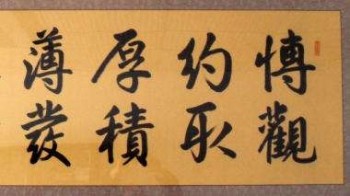 博觀
約取
厚積
薄發